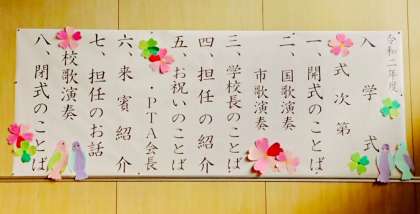 令和二年度
入学式
式次第
一、開式のことば
二、国歌演奏
市歌演奏
三、学校長のことば
四、担任の紹介
五、お祝いのことば
・PTA会長
六、来賓紹介
七、担任のお話
校歌演奏
八、閉式のことば